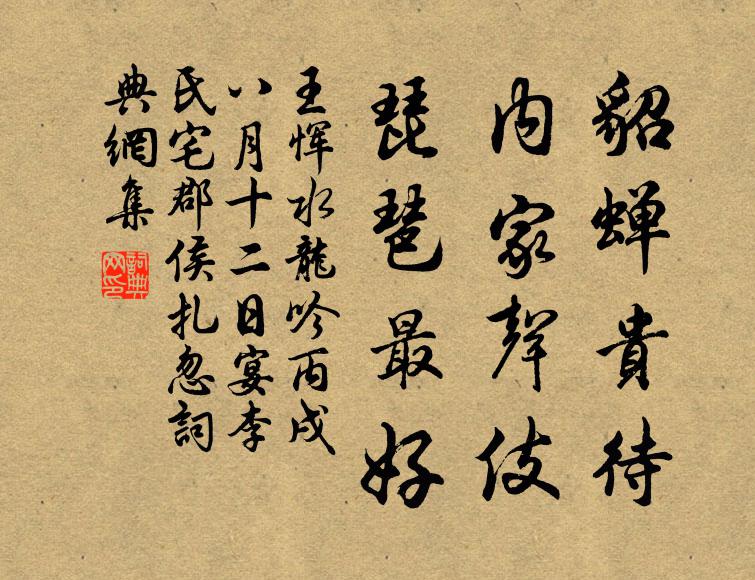 貂蟬貴待
内家聲伎
琵琶最好
王惲水龍吟丙戌
八月十二日宴李
氏宅郡侯扎忽詞
典網集
詞典網印